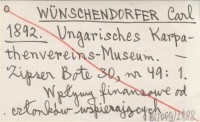 WÜNSCHENDORFER Carl
1892. Ungarisches Karpa-
thenvereins-Museum. –
Zipser Bote 30, nr 49: 1.
Wpływy finansowe od
członków wspierających